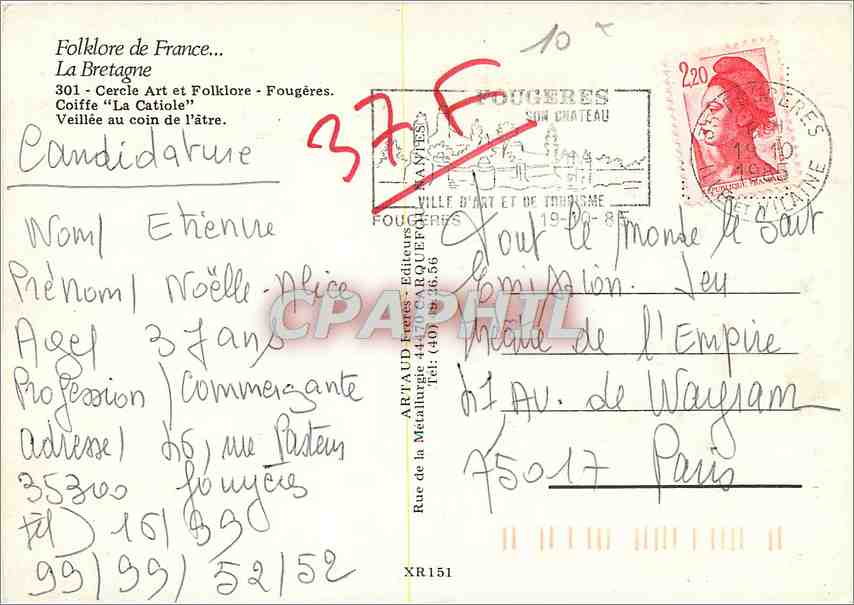 Folklore de France...
La Bretagne
301 - Cercle Art et Folklore - Fougères.
Coiffe "La Catiole"
Veillée au coin de l'âtre.
Candidature
Nom/ Etienne
Prénom/ Noëlle-Alice
Age/ 37 ans
Profession/ Commerçante
adresse/ 46, rue Pasteur
35300 Fougères
Tél/ 16/99
99/99/52/52
37 F
10
FOUGERES
SON CHATEAU
VILLE D'ART ET DE TOURISME
FOUGERES 19-10-85
2,20
REPUBLIQUE FRANÇAISE
35 FOUGERES
19-10
1985
ILLE ET VILAINE
ARTAUD Frères - Editeurs
Rue de la Métallurgie 44470 CARQUEFOU NANTES
Tél: (40) 49.36.56
CPAPHIL
Tout le monde le sait
Emission. Jeu
Théâtre de l'Empire
41, Av. de Wagram
75017 Paris
XR151